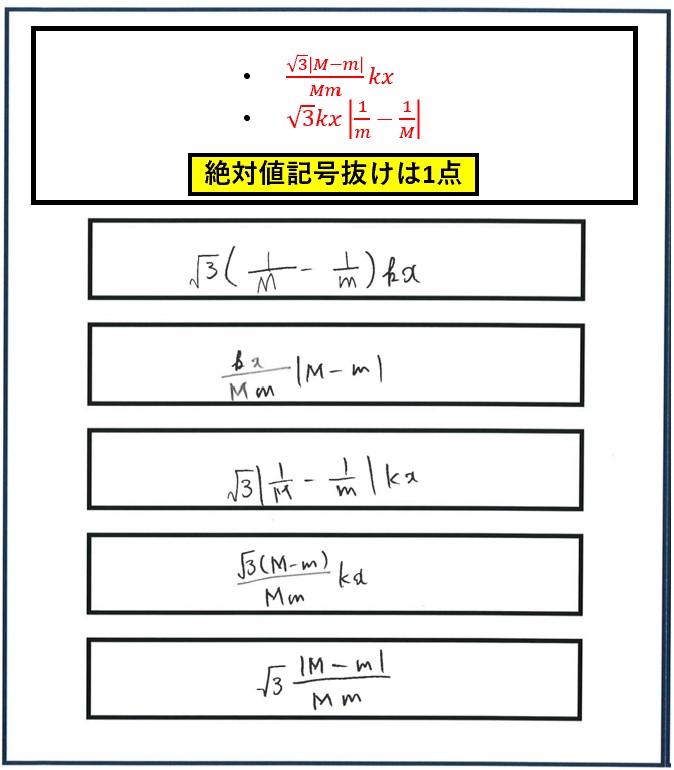 • √3|M−m|/Mm kx
• √3kx|1/m − 1/M|
絶対値記号抜けは1点
√3(1/M − 1/m)kx
kx/Mm |M−m|
√3|1/M − 1/m|kx
√3(M−m)/Mm kx
√3 |M−m|/Mm